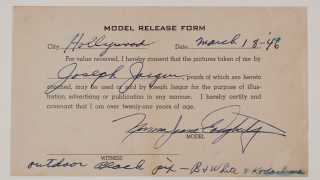 MODEL RELEASE FORM
City Hollywood Date March 18-'46
For value received, I hereby consent that the pictures taken of me by
Joseph Jasgur, proofs of which are hereto
attached, may be used or sold by Joseph Jasgur for the purpose of illus-
tration, advertising or publication in any manner. I hereby certify and
covenant that I am over twenty-one years of age.
Norma Jeane Dougherty
MODEL
WITNESS
outdoor Beach pix – B & White & Kodachrome